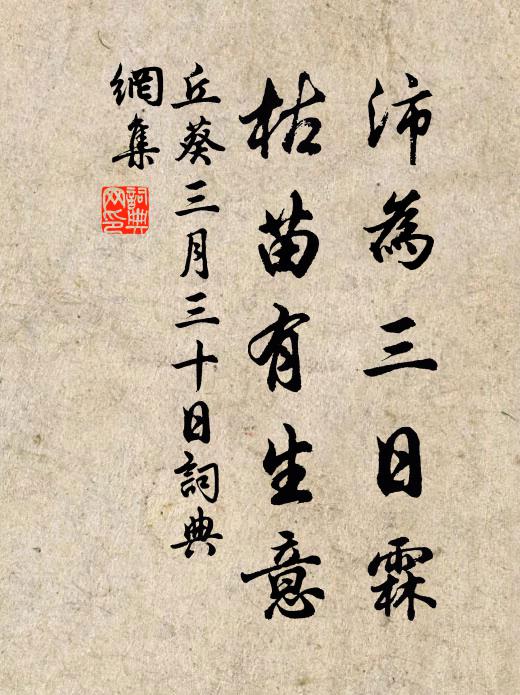 沛為三日霖
枯苗有生意
丘葵三月三十日詞典
網集
詞典网印